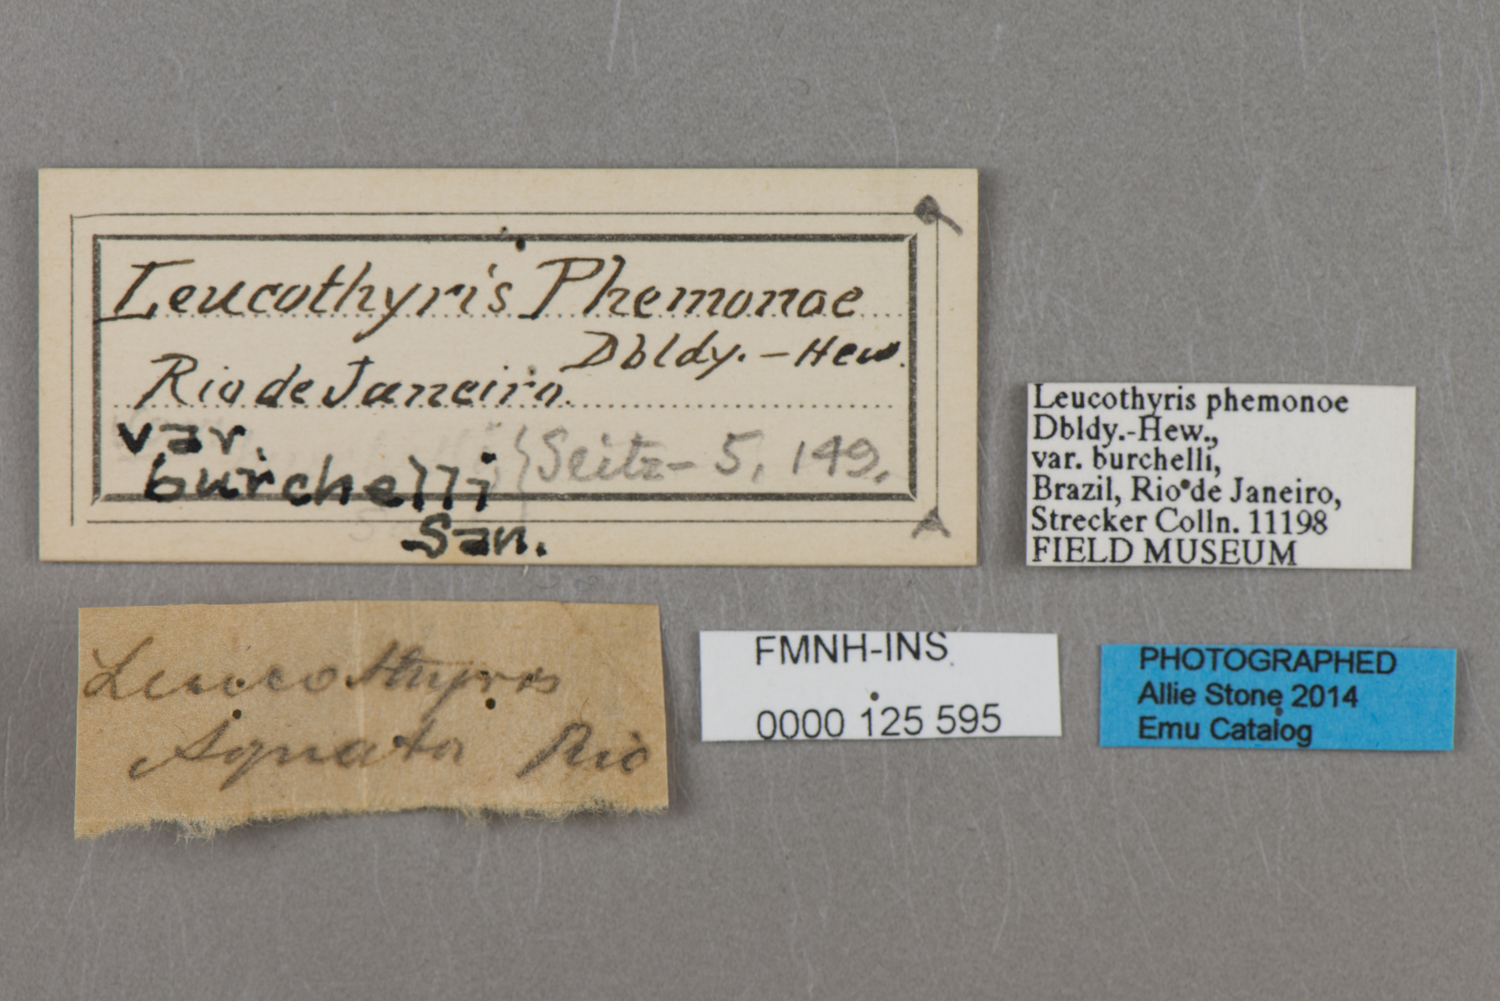 Leucothyris Phemonoe
Dbldy.-Hew.
Rio de Janeiro.
var.
burchelli
San.
Seitz-5, 149.
Leucothyris phemonoe
Dbldy.-Hew.,
var. burchelli,
Brazil, Rio de Janeiro,
Strecker Colln. 11198
FIELD MUSEUM
Leucothyris
Aquata Rio
FMNH-INS
0000 125 595
PHOTOGRAPHED
Allie Stone 2014
Emu Catalog